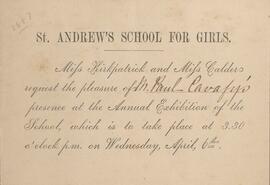 St. ANDREW'S SCHOOL FOR GIRLS.
Miss Kirkpatrick and Miss Calder
request the pleasure of Mr. Paul Cavafy's
presence at the Annual Exhibition of the
School, which is to take place at 3.30
o'clock p.m. on Wednesday, April, 6th.